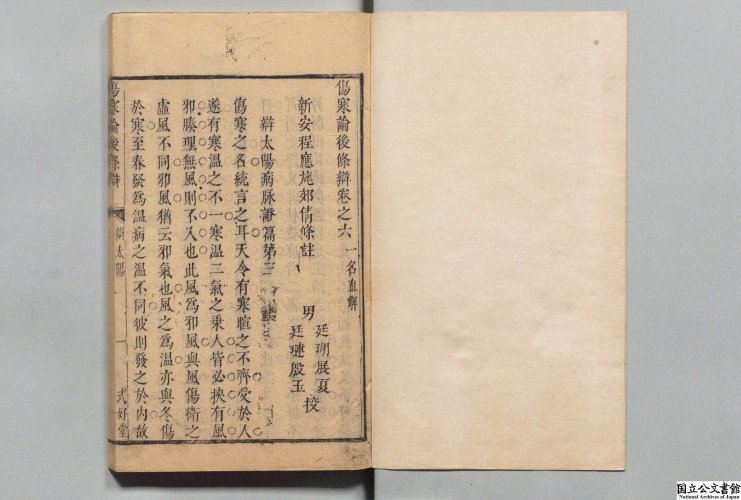 傷寒論後條辯卷之六 一名直解
新安程應旄郊倩條註
男 廷瑚展夏
廷璉殷玉 校
辯太陽病脉證篇第三
傷寒之名統言之耳天令有寒暄之不齊受於人
遂有寒溫之不一寒溫二氣之乗人皆必挾有風
邪腠理無風則不入也此風爲邪風與風傷衛之
虛風不同邪風猶云邪氣也風之爲溫亦與冬傷
於寒至春發爲溫病之溫不同彼則發之於内故
傷寒論後條辯
辯太陽
一
式好堂
国立公文書館
National Archives of Japan